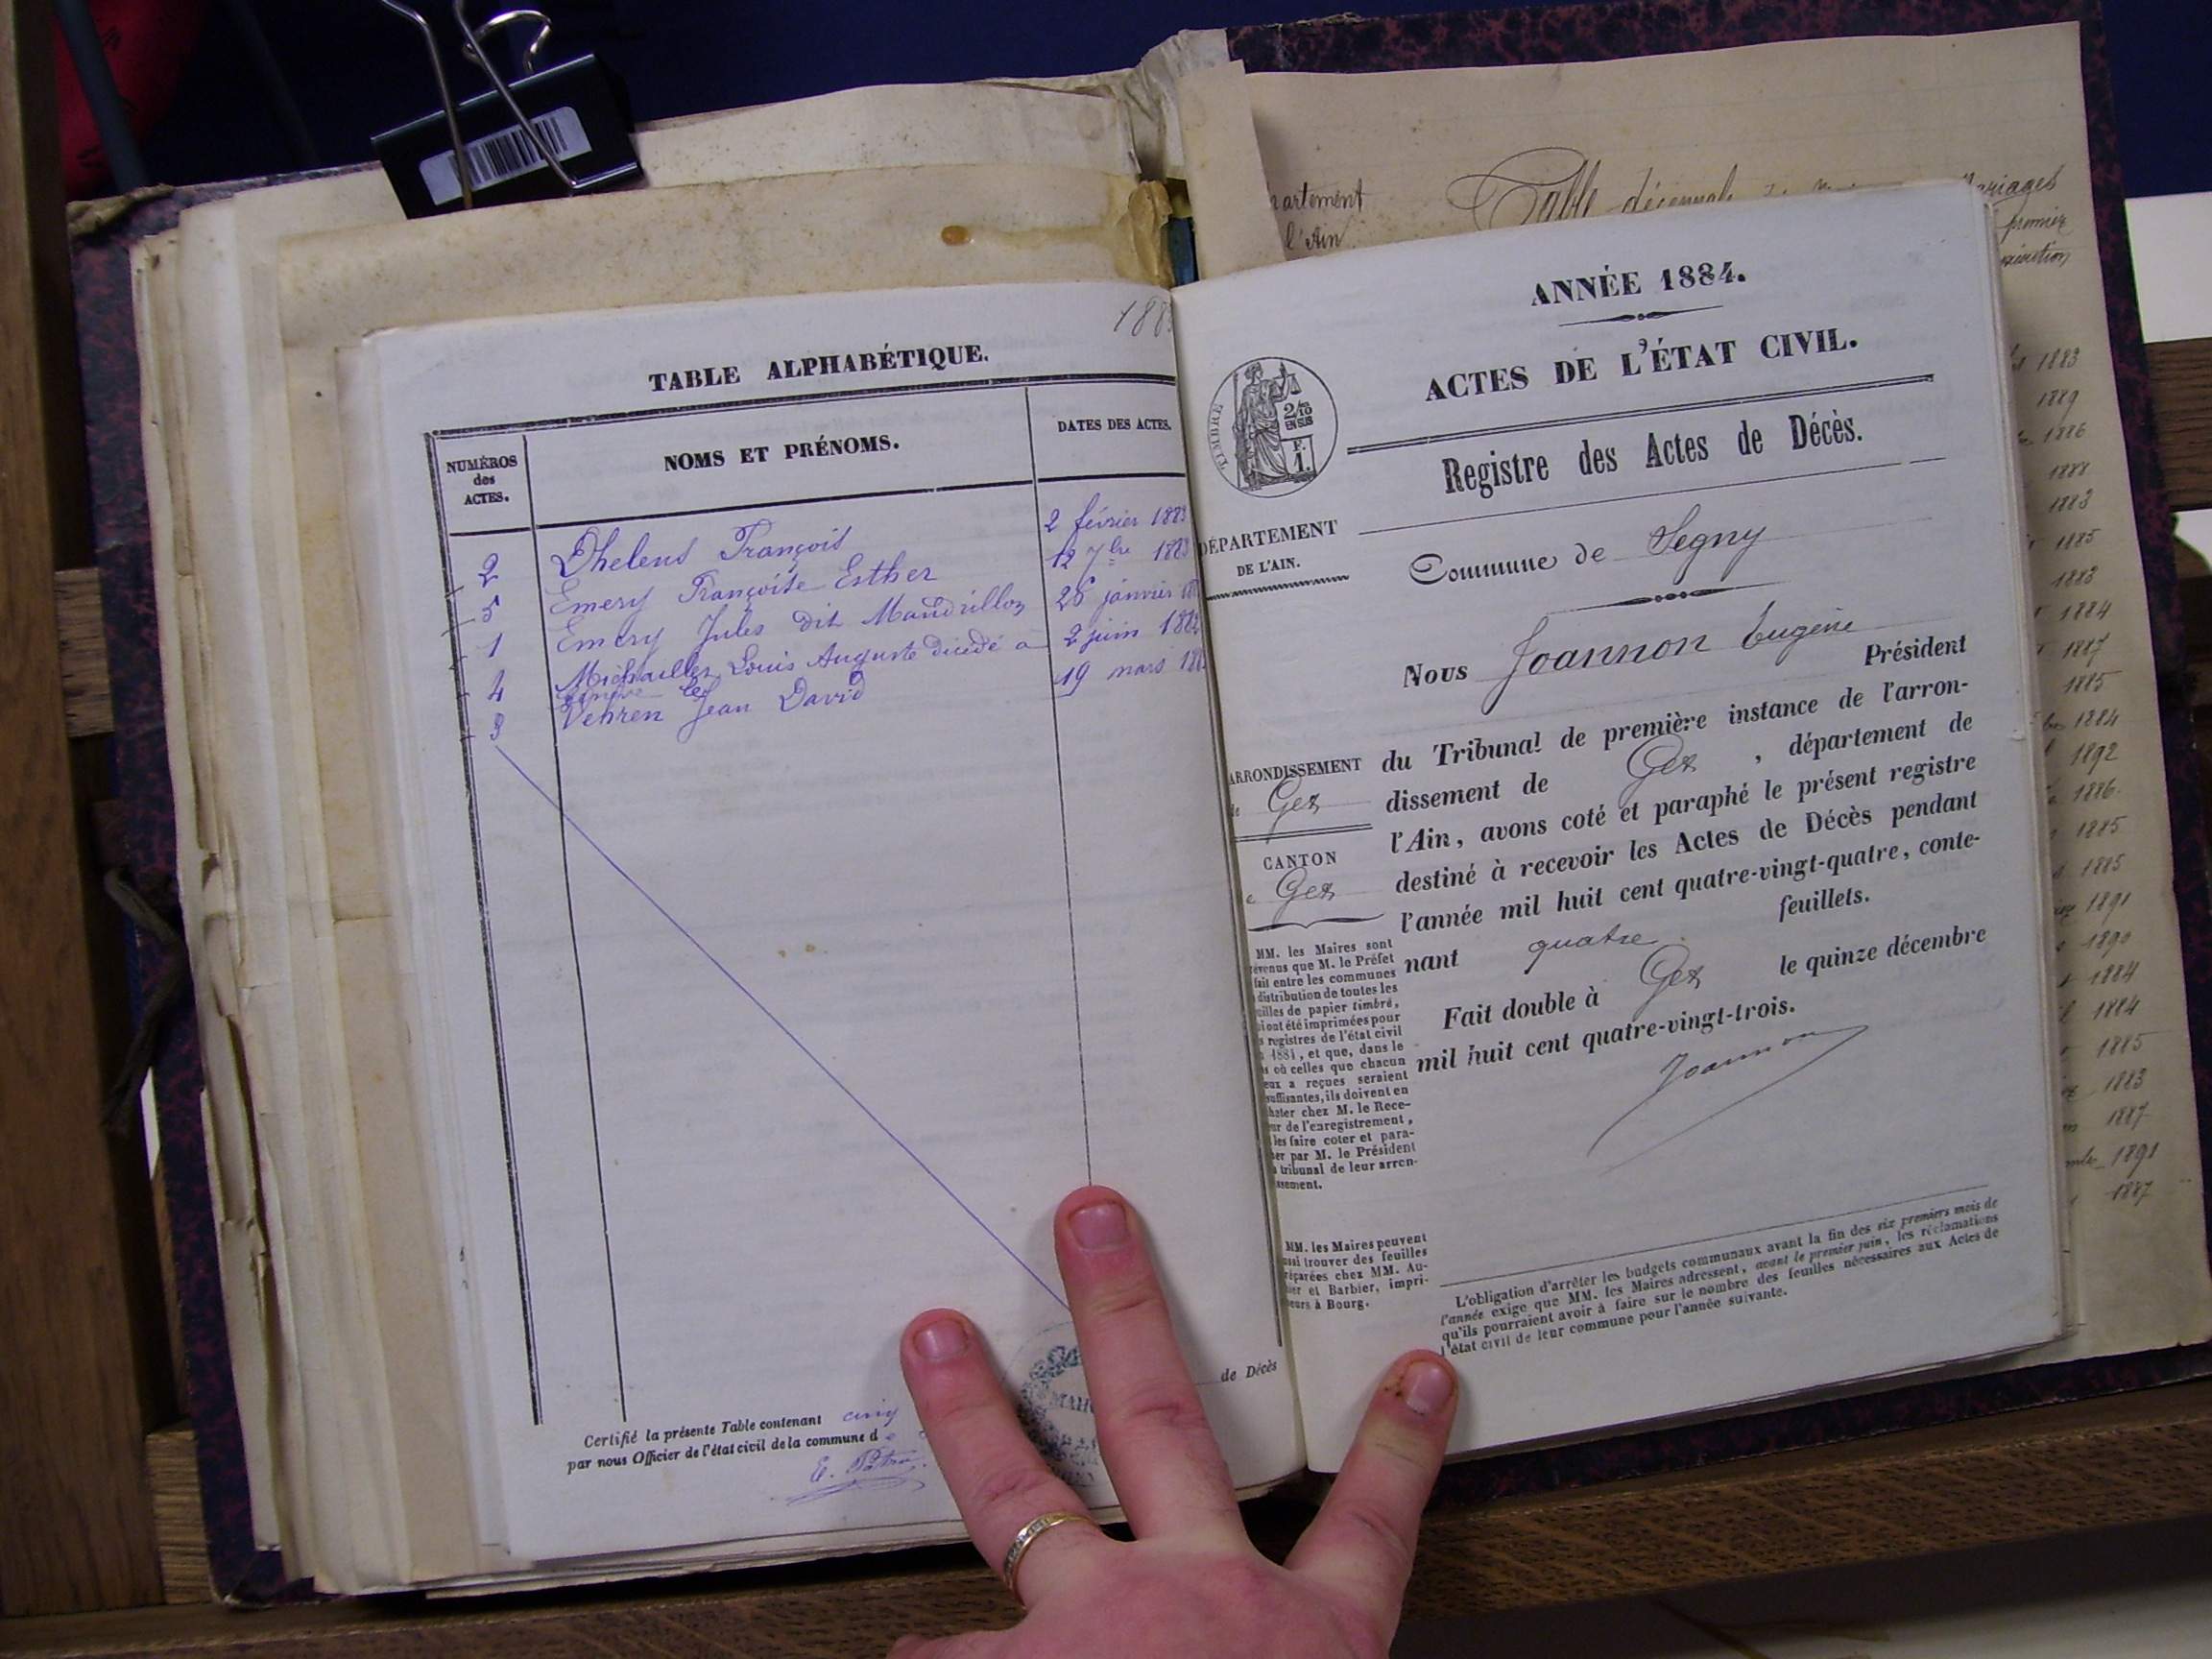 1883
TABLE ALPHABÉTIQUE.
NUMÉROS
des
ACTES.
NOMS ET PRÉNOMS.
DATES DES ACTES.
2 Dhelens François 2 février 1883
5 Emery Françoise Esther 12 7bre 1883
1 Emery Jules dit Mandrillon 26 janvier
4 Louis Auguste décédé à 2 juin 188
Genève le
3 Vehren Jean David 19 mars 18
Certifié la présente Table contenant cinq
de Décès
par nous Officier de l'état civil de la commune d
E.
MAI
partement
l'Ain
Table décennale
Mariages
premier
ANNÉE 1884.
ACTES DE L'ÉTAT CIVIL.
TIMBRE
2/10
EN SUS
F.
1.
Registre des Actes de Décès.
DÉPARTEMENT
DE L'AIN.
Commune de Segny
Nous Joannon Eugène Président
du Tribunal de première instance de l'arron-
dissement de Gex , département de
l'Ain, avons coté et paraphé le présent registre
destiné à recevoir les Actes de Décès pendant
l'année mil huit cent quatre-vingt-quatre, conte-
nant quatre feuillets.
Fait double à Gex le quinze décembre
mil huit cent quatre-vingt-trois.
Joannon
ARRONDISSEMENT
de Gex
CANTON
e Gex
MM. les Maires sont
évenus que M. le Préfet
fait entre les communes
distribution de toutes les
uilles de papier timbré,
i ont été imprimées pour
s registres de l'état civil
1884, et que, dans le
s où celles que chacun
eux a reçues seraient
suffisantes, ils doivent en
hater chez M. le Rece-
ur de l'enregistrement,
les faire coter et para-
er par M. le Président
tribunal de leur arron-
ssement.
MM. les Maires peuvent
ssi trouver des feuilles
réparées chez MM. Au-
ier et Barbier, impri-
eurs à Bourg.
L'obligation d'arrêter les budgets communaux avant la fin des six premiers mois de
l'année exige que MM. les Maires adressent, avant le premier juin, les réclamations
qu'ils pourraient avoir à faire sur le nombre des feuilles nécessaires aux Actes de
l'état civil de leur commune pour l'année suivante.
1883
1889
1886
1888
1883
1885
1883
1884
1887
1885
1884
1892
1886
1885
1885
1891
1890
1884
1884
1885
1883
1887
1891
1887